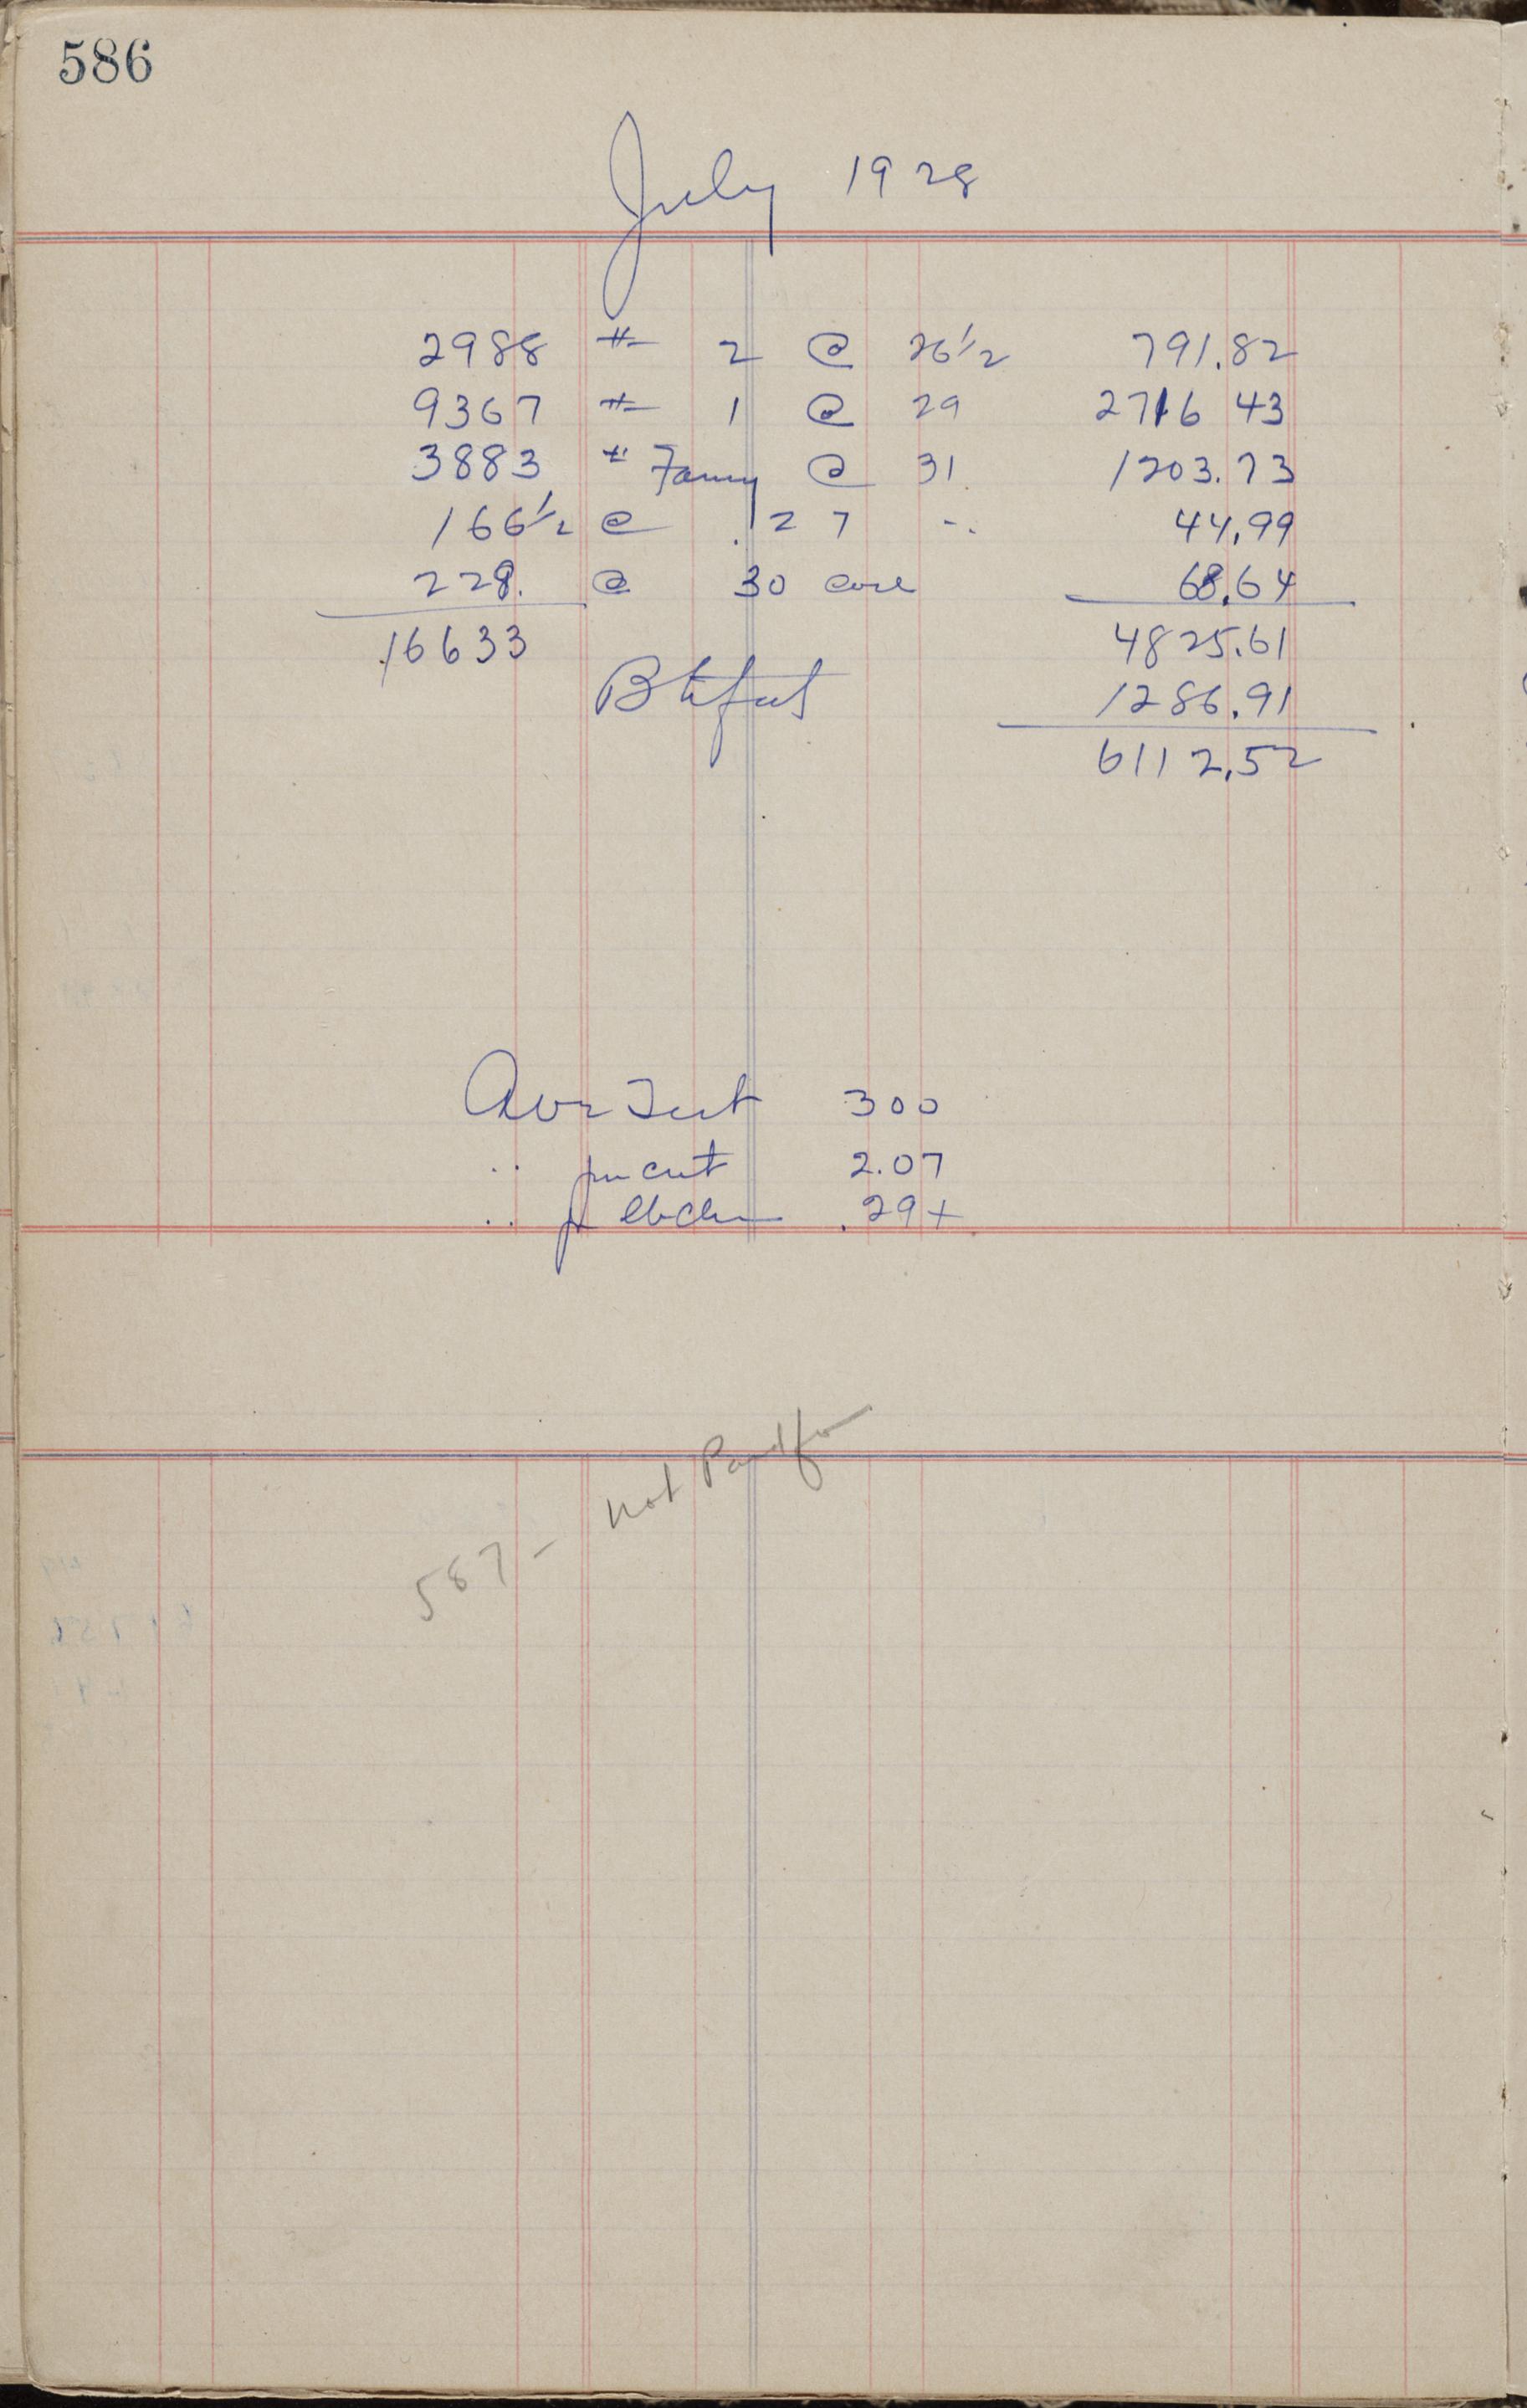 586
July 1928
2988 # 2 @ 26 1/2 791.82
9367 # 1 @ 29 2716 43
3883 # Fancy @ 31 1203.73
166 1/2 @ .27 44.99
229. @ 30 68.64
16633 4825.61
1286.91
6112.52
Avr Test 300
" per cwt 2.07
" p lb 29+
587 - not Paid for